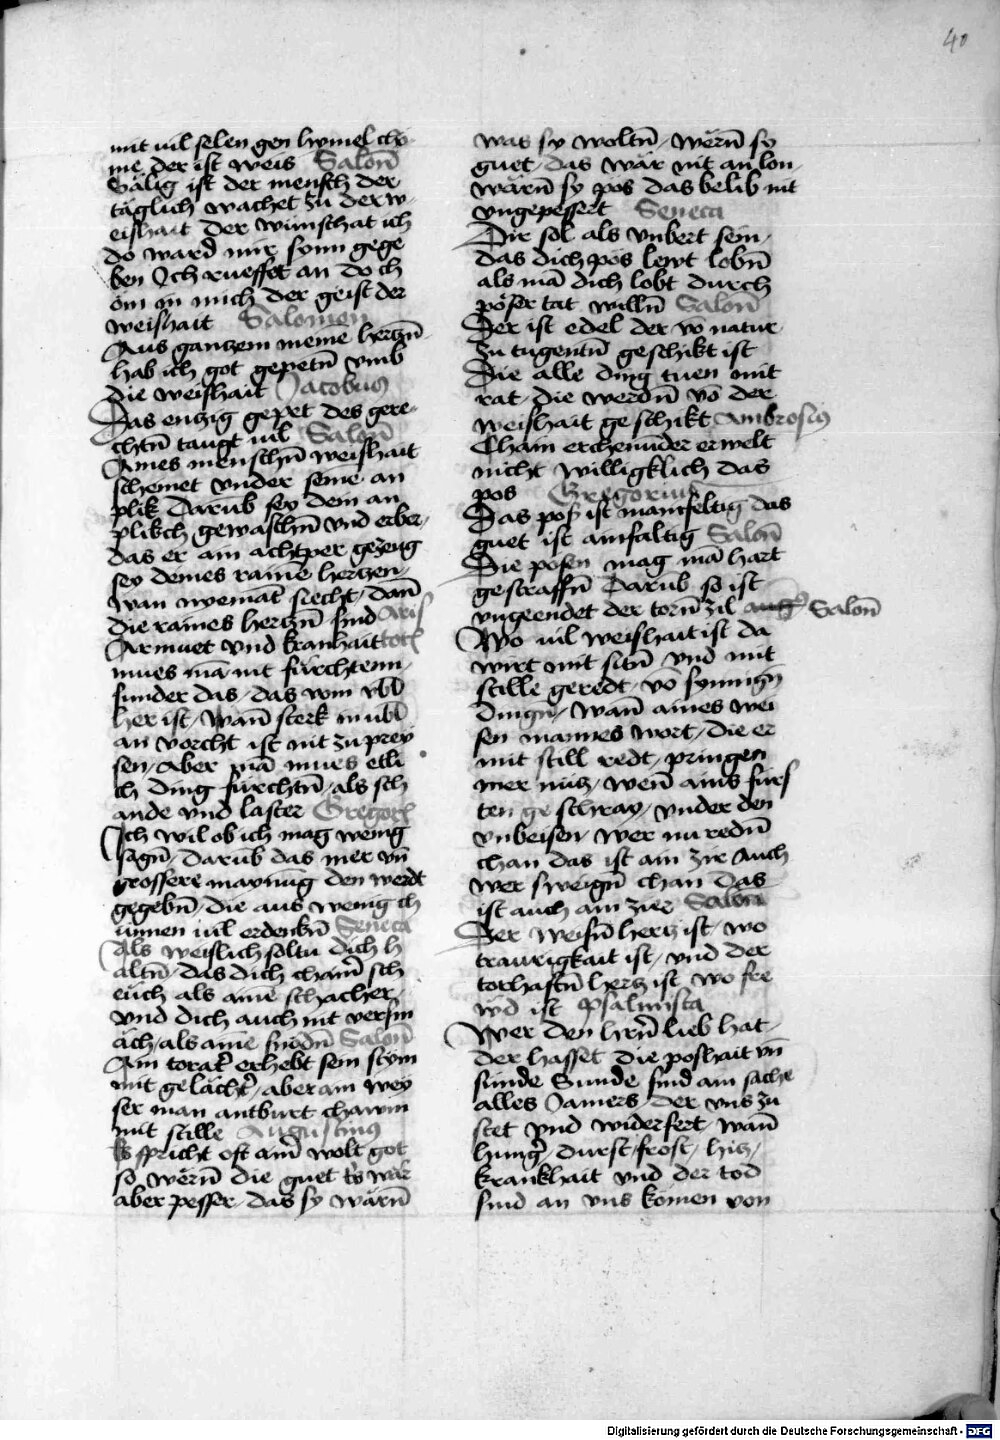 40
mit uil selen gen hymel cho-
me der ist weis Salon̄
Sälig ist der mensch der
täglich wachet zu der w-
eishait der wünschat ich
do ward mir synn gege
ben Ich rueffet an do ch
öm in mich der geist der
weishait Salomon
Aus gantzem meinē hertzn̄
hab ich got gepetn̄ vmb
die weishait Jacobus
Das entzig gepet des gere-
chtn̄ taugt uil Salon̄
Aines menschn̄ weishait
scheinet vnder seinē an
plik Darūb sey dem an
plikch gewaschn̄ vnd erber
das er am achtper gezeug
sey deines rainē hertzen
wan nyemāt siecht dan̄
die raines hertzn̄ sind Aris
Armuet vnd krankait totl
mues mā nit fürchtenn
sunder das das vom vbl
her ist wan̄ sterk in vbl
an vorcht ist nit zu prey
sen Aber mā mues etli
ch ding fürchtn̄ als sch
ande vnd laster Gregorī
Ich wil ob ich mag wenig
sagn̄ darūb das mer vn̄
grossere maynūg den werdt
gegebn̄ die aus wenig ch
ünnen uil erdenkn̄ Seneca
Als weislich soltu dich h
altn̄ das dich chainˀ sch
euch als ainē schacher
vnd dich auch nit versm
äch als ainē snödn̄ Salon̄
Ain toratˀ erhebt sein stym
mit gelächtˀ aber ain wey
ser man antburt chawm
mit stille Augustinus
Es spricht oft ainˀ wolt got
so wërn̄ die guet es wär
aber pesser das sy wärn̄
was sy woltn̄ wërn̄ sy
guet das wär nit an lon
wärn̄ sy pos das belib nit
vngepessert Seneca
Dir sol als vnbert sein
das dich pös lewt lobn̄
als mā dich lobt durch
pöser tat willn̄ Salon̄
Der ist edel der vō natur
zu tugentn̄ geschikt ist
Die alle ding tuen mit
rat die werdn̄ vō der
weishait geschikt Ambrosiꝯ
Chain erchennder erwelt
nicht willigklich das
pos Gregorius
Das pos ist manifeltig das
guet ist ainfaltig Salon̄
Die posen mag mā hart
gestraffn̄ Darūb so ist
vngeendet der torn̄ zil Salon̄
Wo uil weishait ist da
wirt mit sitn̄ vnd mit
stille geredt vō synnign̄
dingn̄ Wan̄ aines wei
sen mannes wort die er
mit still redt pringen
mer nütz wen̄ ains fürs
ten geschray vnder den
vnbeisen Wer nu redn̄
chan das ist ain zir Auch
wer sweign̄ chan das
ist auch ain zier Salon̄
Der weisn̄ hertz ist wo
traurigkait ist vnd der
torhaftn̄ hertz ist wo fre
wd ist Psalmista
Wer den hrn̄ lieb hat
der hasset die poshait vn̄
sünde Sunde sind ain sache
alles Jamers der vns zu
stet vnd widerfert wan̄
hungˀ durst frost hitz
krankhait vnd der tod
sind an vns komen von
Digitalisierung gefördert durch die Deutsche Forschungsgemeinschaft - DFG